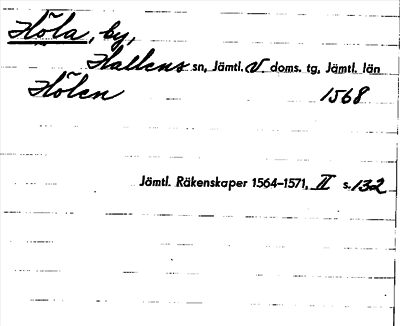 Höla, by,
Hallens sn, Jämtl. V. doms. tg, Jämtl. län
Hölen 1568
Jämtl. Räkenskaper 1564–1571, II s. 132